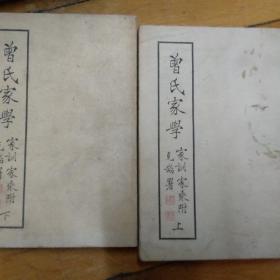 曾氏家學
家訓家乘附
上
曾氏家學
家訓家乘附
下